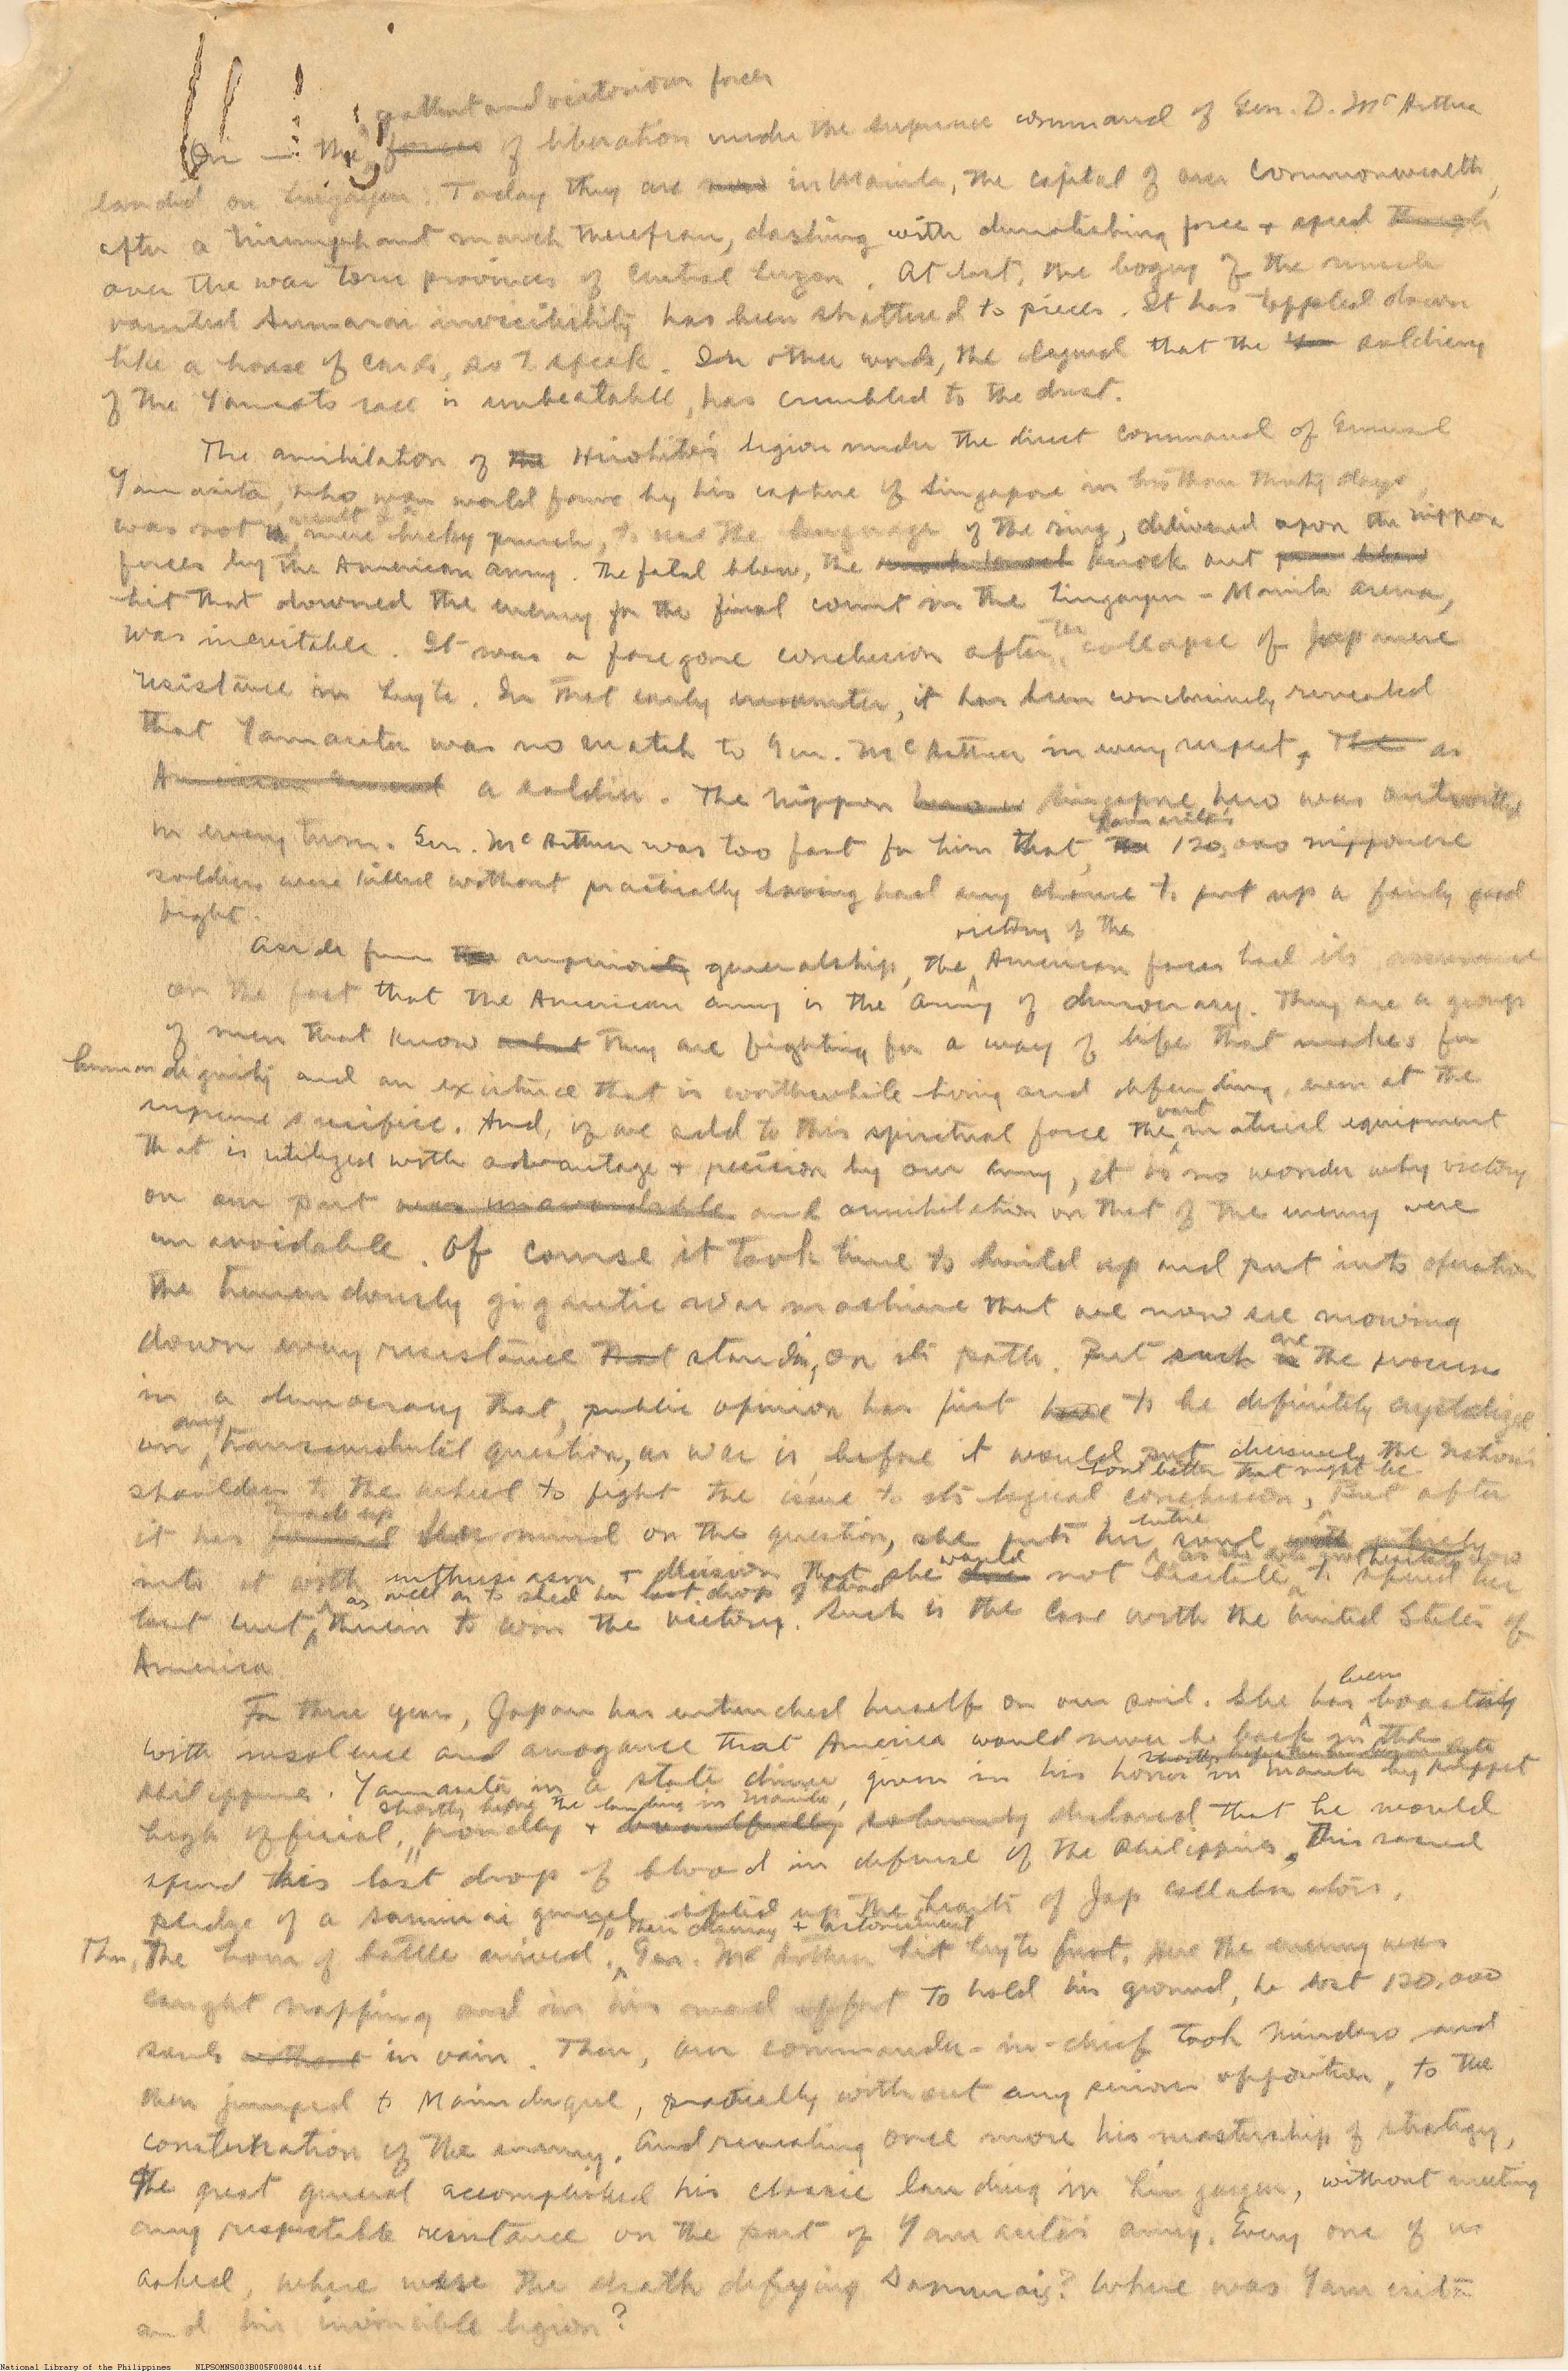 gallant and victorious forces
On — the forces of liberation under the supreme command of Gen. D. McArthur
landed on Lingayen. Today they are now in Manila, the capital of our Commonwealth,
after a triumphant march therefrom, dashing with demolishing force + speed through
over the war torn provinces of Central Luzon. At last, the bogey of the much
vaunted Samurai invicibility has been shattered to pieces. It has toppled down
like a house of cards, so to speak. In other words, the legend that the soldiery
of the Yamato race is unbeatable, has crumbled to the dust.
The annihilation of the Hirohito's legion under the direct command of General
Yamasita, who won world fame by his capture of Singapore in less than thirty days,
was not a mere lucky punch, to use the language of the ring, delivered upon the nippon
forces by the American army. The fatal blow, the knock out blow
hit that downed the enemy for the final count in the Lingayen - Manila arena,
was inevitable. It was a foregone conclusion after the collapse of Japanese
resistance in Leyte. In that early encounter, it has been conclusively revealed
that Yamasita was no match to Gen. McArthur in every respect, The as
American General a soldier. The Nippon hero Singapore hero was outwitted
in every turn. Gen. McArthur was too fast for him that, Yamasita's the 120,000 nipponese
soldiers were killed without practically having had any chance to put up a fairly good
fight.
victory of the
Aside from the superiority generalship, the American forces had its assurance
on the fact that the American army is the army of democracy. They are a group
of men that know what they are fighting for a way of life that makes for
human dignity and an existence that is worthwhile living and defending, even at the
supreme sacrifice. And, if we add to this spiritual force the vast material equipment
that is utilized with advantage + precision by our army, it is no wonder why victory
on our part was unavoidable and annihilation on that of the enemy were
unavoidable. Of course it took time to build up and put into operation
the tremendously gigantic war machine that we now see mowing
down every resistance that standing on its path. But such is are the process
in a democracy that, public opinion has first have to be definitely crystalized
on any transcendental question, as war is, before it would put decisively the nation's
how bitter that might be
shoulder to the wheel to fight the issue to its logical conclusion, But after
it has formed made up her mind on the question, she puts her entire soul with entirely
into it with enthusiasm + decision that she does would not hesitate to spend her
as well as to shed her last drop of blood
last cent, therein to win the victory. Such is the case with the United States of
America.
For three years, Japan has entrenched herself on our soil. She has been boasting
with insolence and arrogance that America would never be back in the
Philippines. Yamasita in a state dinner, given in his honor in Manila by puppet
shortly before the landing in Manila,
high official, proudly + boastfully solemnly declared that he would
spend his last drop of blood in defense of the Philippines. This sacred
pledge of a samurai general lifted up the hearts of Jap collaborators.
to their dismay + astonishment
Then, The hour of battle arrived. Gen. McArthur hit Leyte first. Here the enemy was
caught napping and in his mad effort to hold his ground, he lost 120,000
souls without in vain. Then, our commander-in-chief took Mindoro and
then jumped to Marinduque, practically without any serious opposition, to the
consternation of the enemy. And revealing once more his mastership of strategy,
the great general accomplished his classic landing in Lingayen, without meeting
any respectable resistance on the part of Yamasita's army. Every one of us
asked, where were the death defying Samurais? Where was Yamasita
and his invincible legion?
National Library of the Philippines NLPSOMNS003B005F008044.tif